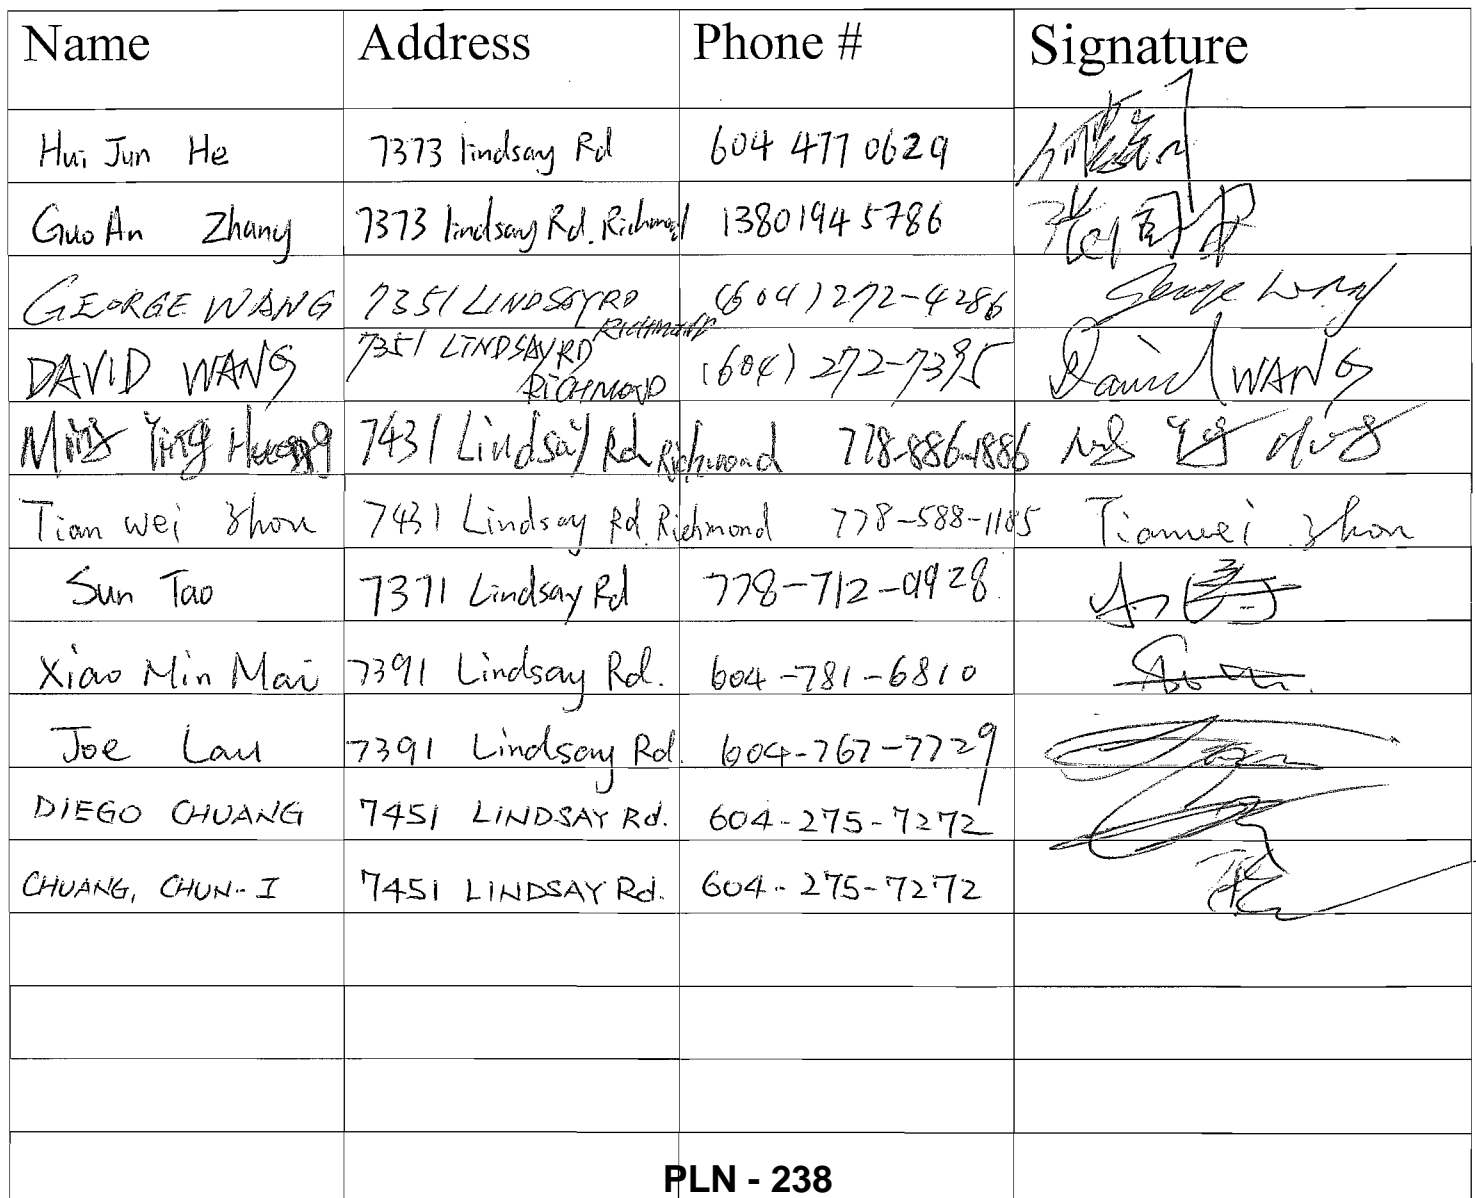 Name Address Phone # Signature
Hui Jun He 7373 lindsay Rd 604 477 0629
Guo An Zhang 7373 lindsay Rd. Richmond 13801945786
GEORGE WANG 7351 LINDSAY RD RICHMOND (604) 272-4286 George Wang
DAVID WANG 7351 LINDSAY RD RICHMOND (604) 272-7395 David WANG
Ming Ying Huang 7431 Lindsay Rd Richmond 778-886-1886
Tian wei Zhou 7431 Lindsay Rd Richmond 778-588-1185 Tianwei Zhou
Sun Tao 7371 Lindsay Rd 778-712-9928
Xiao Min Mai 7391 Lindsay Rd. 604-781-6810
Joe Lau 7391 Lindsay Rd. 604-767-7729
DIEGO CHUANG 7451 LINDSAY Rd. 604-275-7272
CHUANG, CHUN-I 7451 LINDSAY Rd. 604-275-7272
PLN - 238